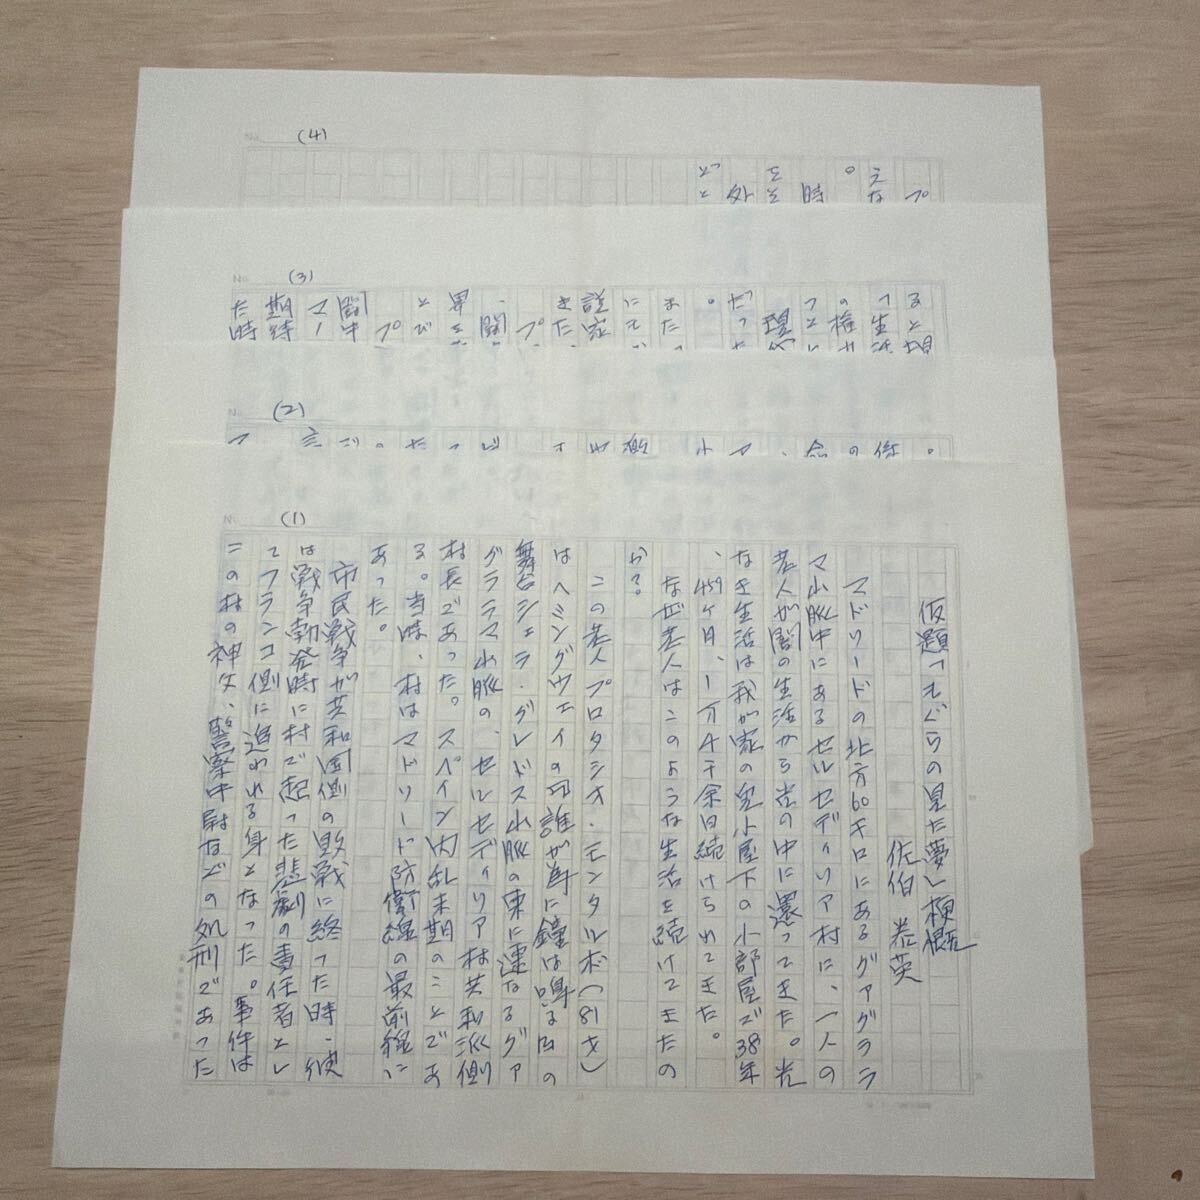 (4)
プ
えな
。
時
外
(3)
生活
の権
だった
また
説家
きた
闘
界を
とび
プ
闘中
マー
期待
た時
(2)
(1)
仮題「もぐらの見た夢」梗概
佐伯 泰英
マドリードの北方60キロにあるグァグララ
マ山脈中にあるセルセディリア村に、一人の
老人が闇の生活から光の中に還ってきた。光
なき生活は我が家の兎小屋下の小部屋で38年
、459ケ月、1万4千余日続けられてきた。
なぜ老人はこのような生活を続けてきたの
か?
この老人プロタシオ・モンタルボ(81才)
はヘミングウェイの『誰が為に鐘は鳴る』の
舞台シェラ・グレドス山脈の東に連なるグァ
グララマ山脈の、セルセディリア村共和派側
村長であった。スペイン内乱末期のことであ
る。当時、村はマドリード防衛線の最前線に
あった。
市民戦争が共和国側の敗戦に終った時、彼
は戦争勃発時に村で起った悲劇の責任者とし
てフランコ側に追われる身となった。事件は
この村の神父、警察中尉などの処刑であった